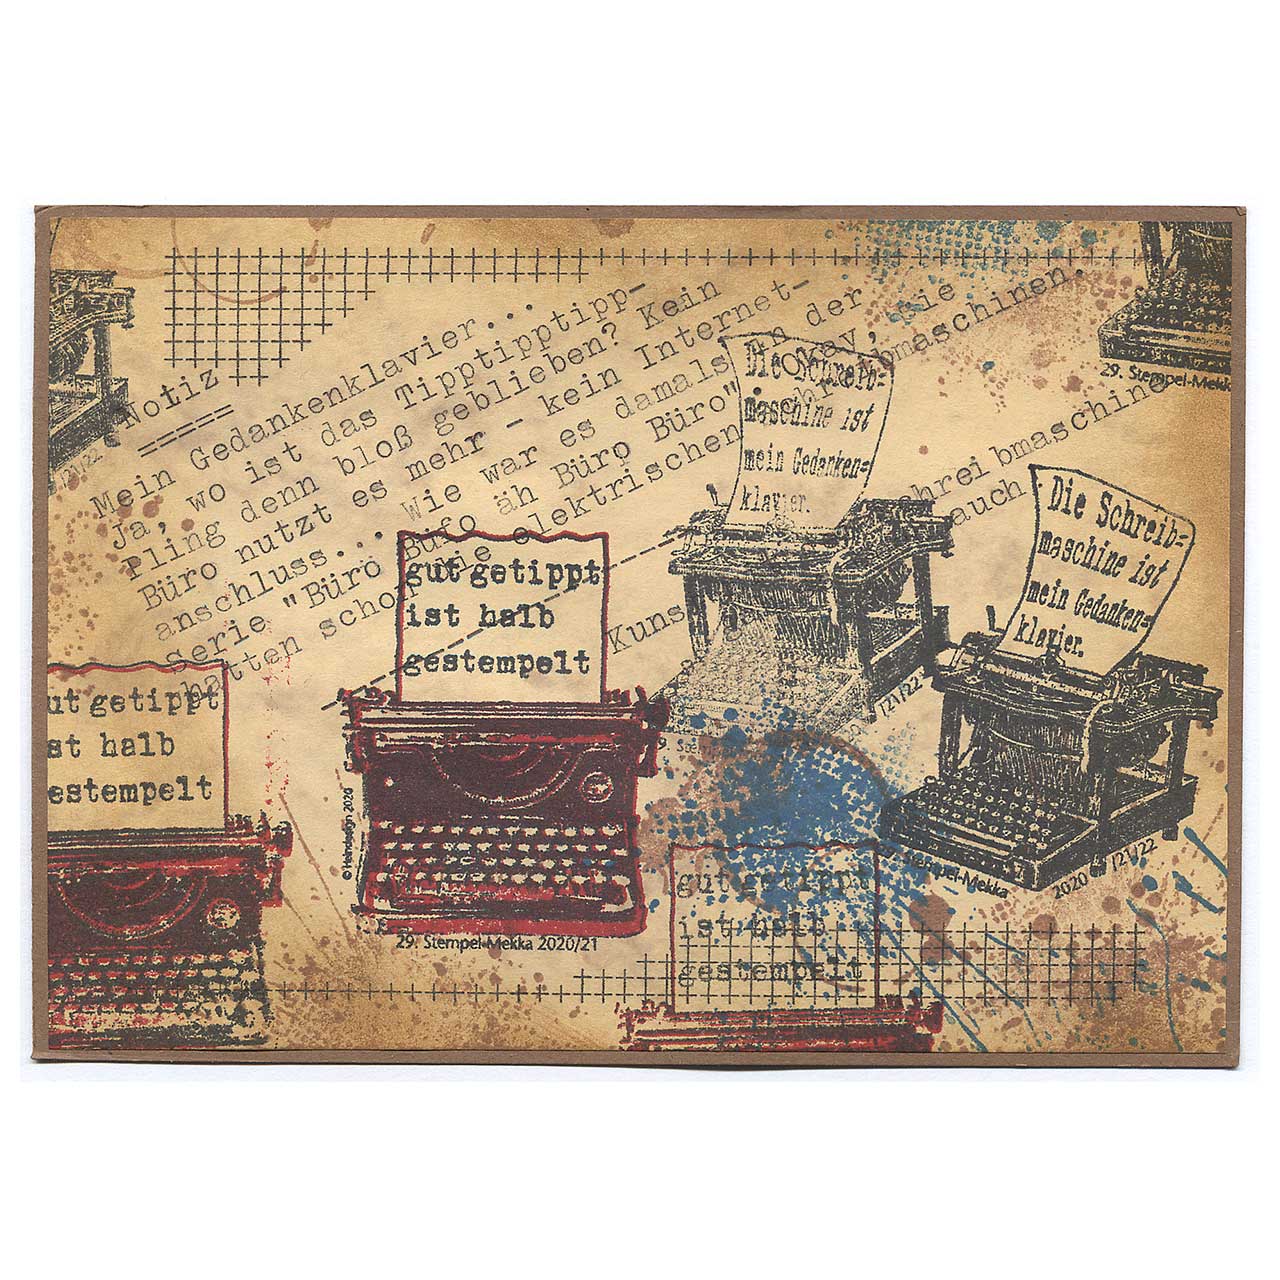 Notiz
=====
Mein Gedankenklavier...
Ja, wo ist das Tipptipptipp-
Pling denn bloß geblieben? Kein
Büro nutzt es mehr - kein Internet-
anschluss... Wie war es damals in der
Serie "Büro Büro äh Büro Büro" Okay, sie
hatten schon die elektrischen Schreibmaschinen.
Kuns
schreibmaschine
auch
Die Schreib=
maschine ist
mein Gedanken=
klavier.
Die Schreib=
maschine ist
mein Gedanken=
klavier.
2020 /21/22
gut getippt
ist halb
gestempelt
©Hahndesign 2020
29. Stempel-Mekka 2020/21
ut getippt
st halb
estempelt
gut getippt
ist halb
gestempelt
29. Stempel-Mekk
/21/22
/21/22